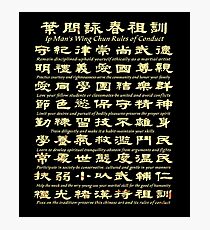 葉問詠春祖訓
Ip Man's Wing Chun Rules of Conduct
守紀律崇尚武德
Remain disciplined uphold yourself ethically as a martial artist
明禮義愛國尊親
Practice courtesy and righteousness serve the community and honor your family
愛同學團結樂群
Love your fellow students or classmates be united and avoid conflicts
節色慾保守精神
Limit your desires and pursuit of bodily pleasures preserve the proper spirit
勤練習技不離身
Train diligently and make it a habit maintain your skills
學養氣戒濫鬥爭
Learn to develop spiritual tranquility abstain from arguments and fights
常處世態度溫
Participate in society be conservative, cultured and gentle in your manners
扶弱小以武輔仁
Help the weak and the very young use your martial skill for the good of humanity
繼光緒漢持祖訓
Pass on the tradition preserve this chinese art and its rules of conduct